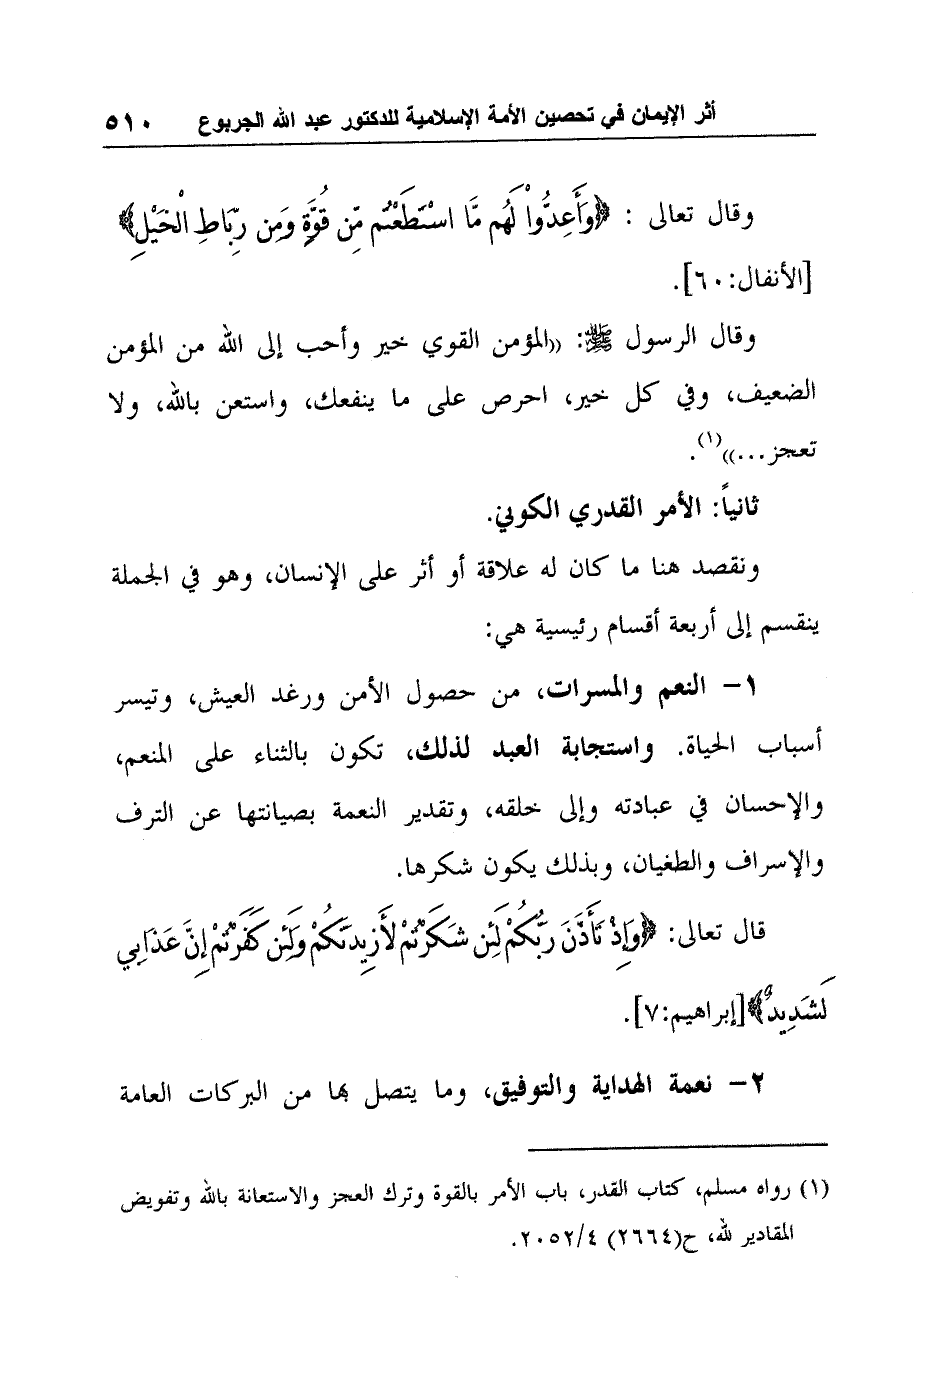 أثر الإيمان في تحصين الأمة الإسلامية للدكتور عبد الله الجربوع ٥١٠
وقال تعالى : ﴿وَأَعِدُّواْ لَهُم مَّا اسْتَطَعْتُم مِّن قُوَّةٍ وَمِن رِّبَاطِ الْخَيْلِ﴾
[الأنفال:٦٠].
وقال الرسول ﷺ: ((المؤمن القوي خير وأحب إلى الله من المؤمن
الضعيف، وفي كل خير، احرص على ما ينفعك، واستعن بالله، ولا
تعجز...))(١).
ثانياً: الأمر القدري الكوني.
ونقصد هنا ما كان له علاقة أو أثر على الإنسان، وهو في الجملة
ينقسم إلى أربعة أقسام رئيسية هي:
١- النعم والمسرات، من حصول الأمن ورغد العيش، وتيسر
أسباب الحياة. واستجابة العبد لذلك، تكون بالثناء على المنعم،
والإحسان في عبادته وإلى خلقه، وتقدير النعمة بصيانتها عن الترف
والإسراف والطغيان، وبذلك يكون شكرها.
قال تعالى: ﴿وَإِذْ تَأَذَّنَ رَبُّكُمْ لَئِن شَكَرْتُمْ لَأَزِيدَنَّكُمْ وَلَئِن كَفَرْتُمْ إِنَّ عَذَابِي
لَشَدِيدٌ﴾[إبراهيم:٧].
٢- نعمة الهداية والتوفيق، وما يتصل بها من البركات العامة
(١) رواه مسلم، كتاب القدر، باب الأمر بالقوة وترك العجز والاستعانة بالله وتفويض
المقادير لله، ح(٢٦٦٤) ٢٠٥٢/٤.